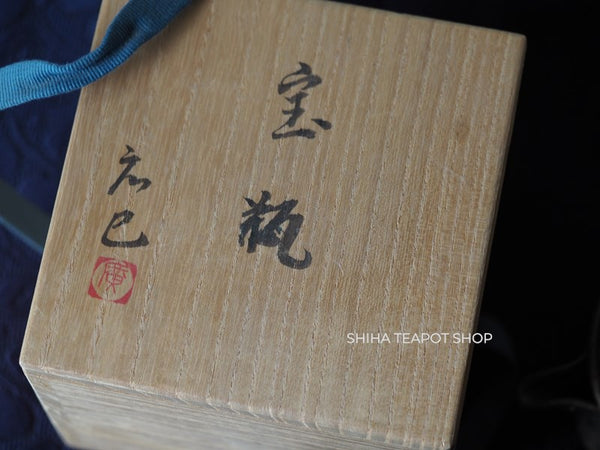 宝瓶
広巳
廣
SHIHA TEAPOT SHOP